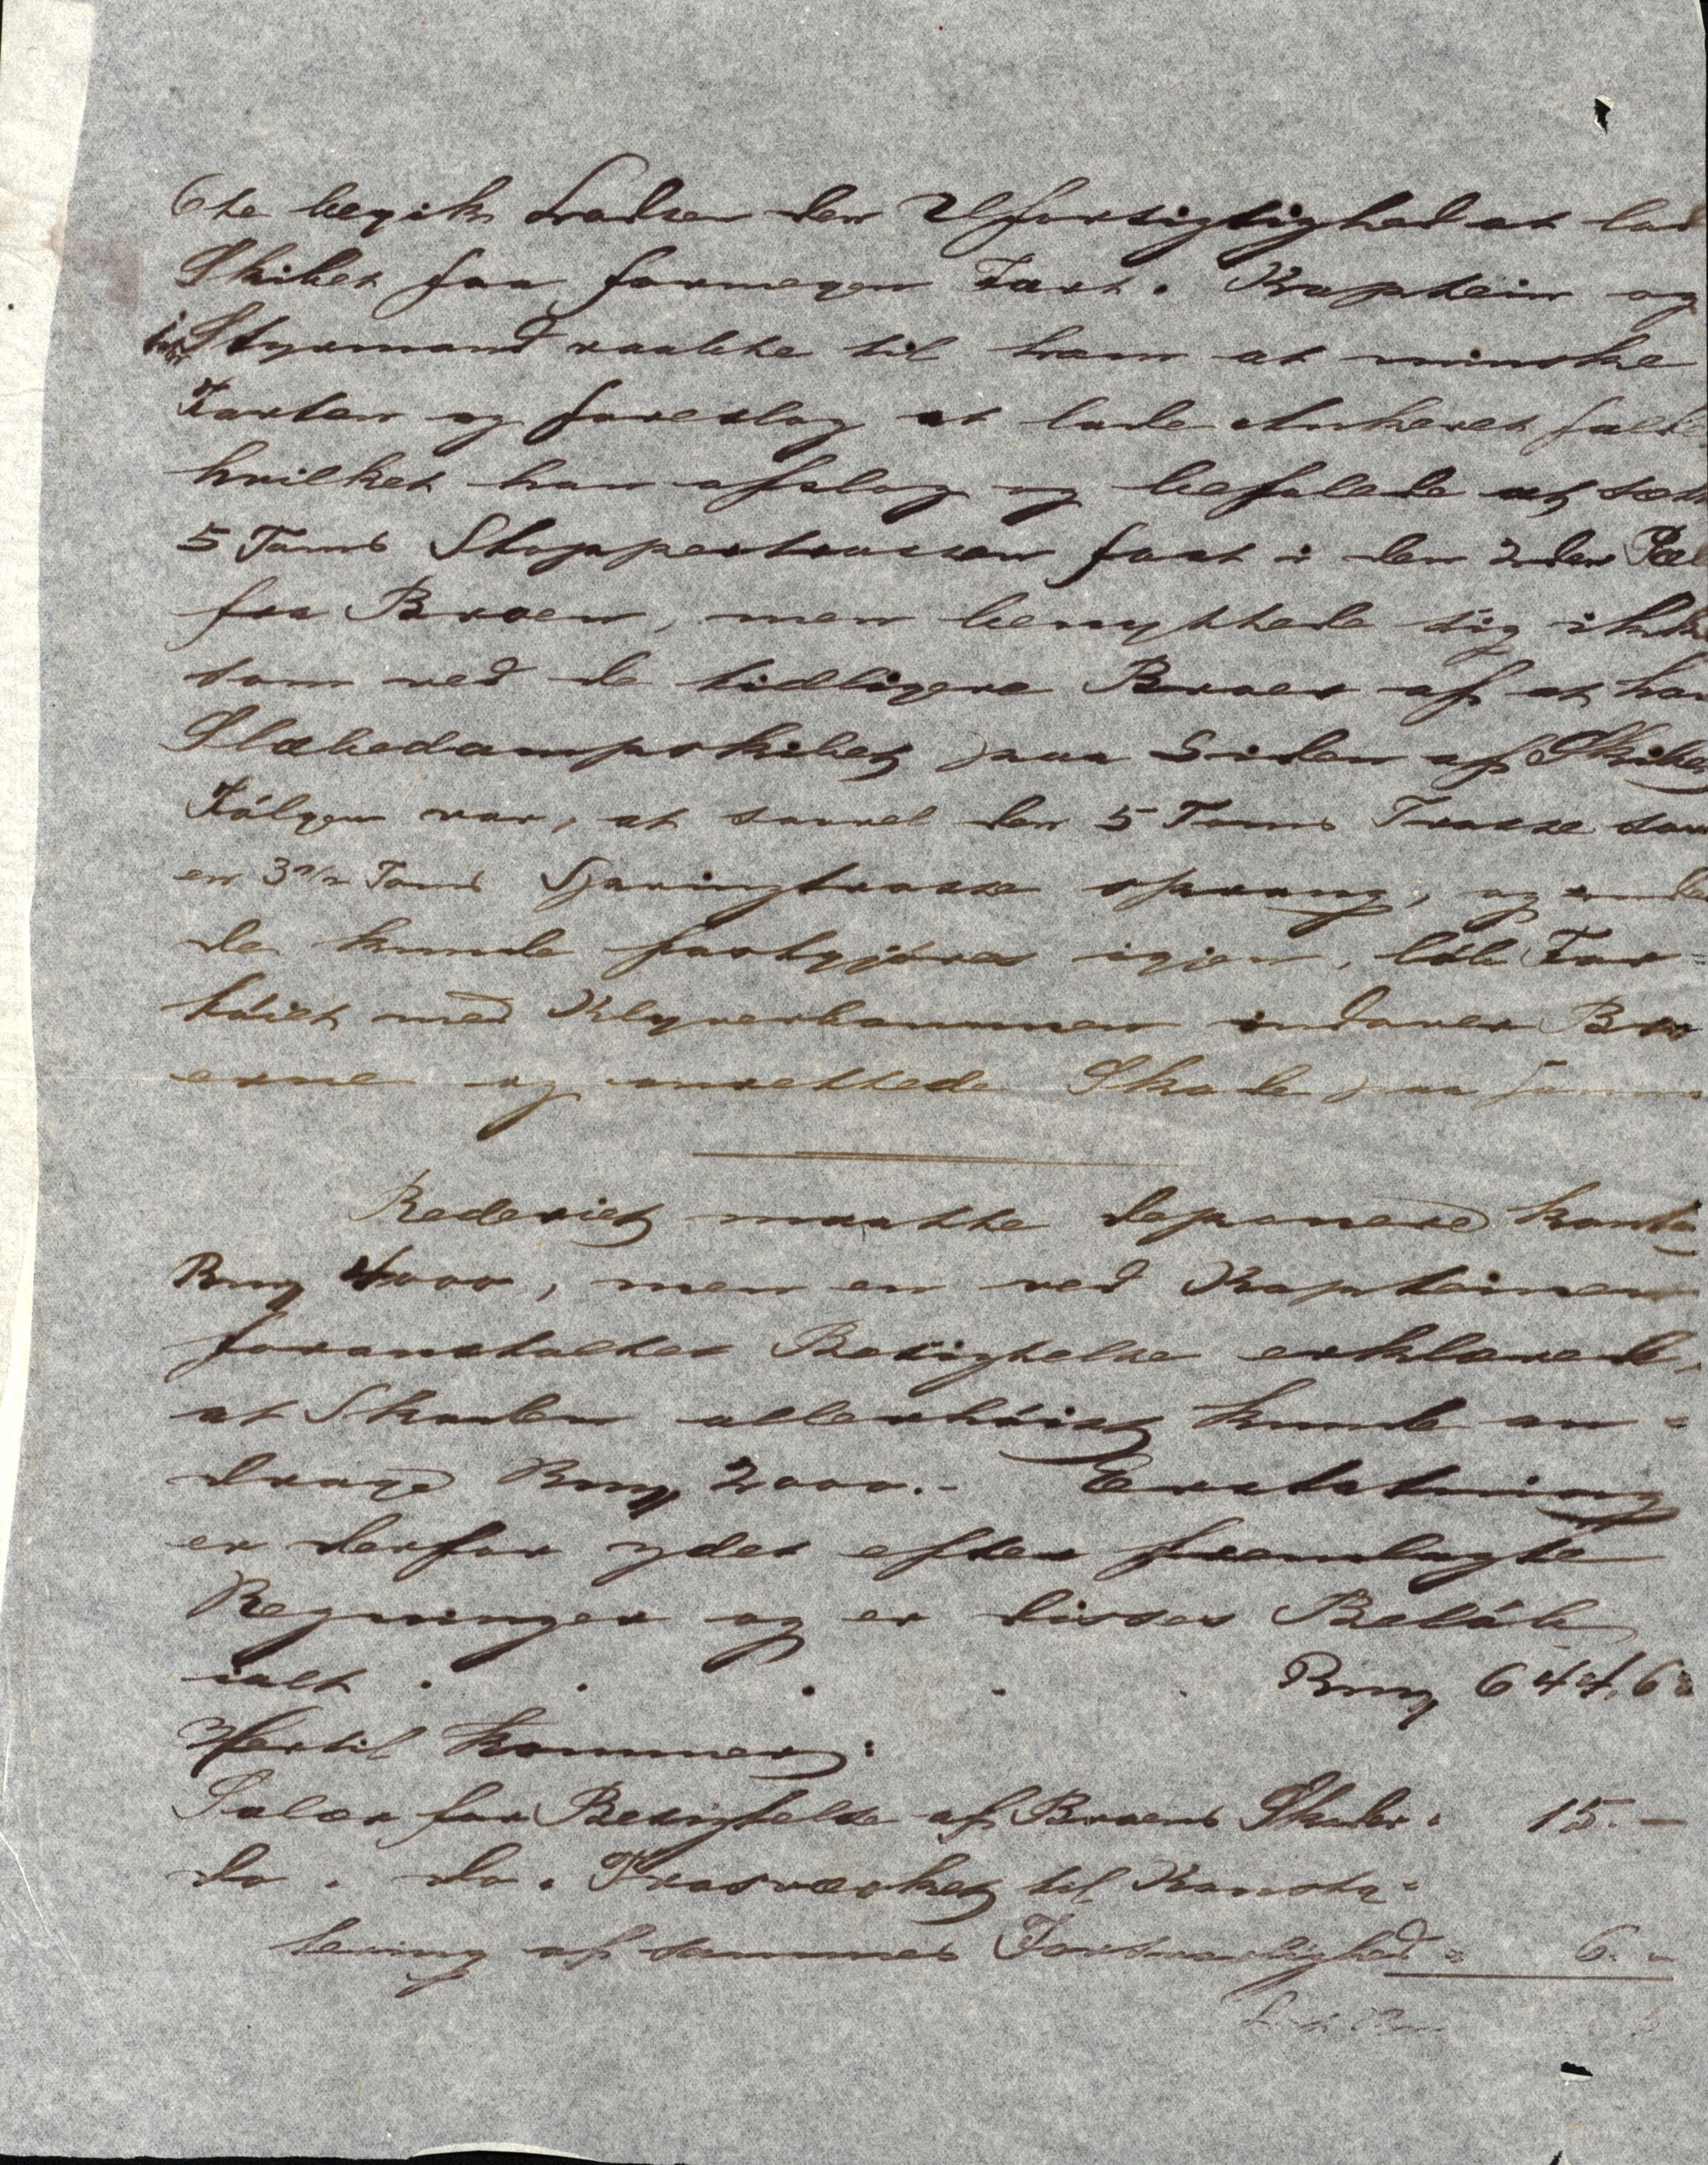 6te begik Lodsen den Uforsigtighed at lad
Skibet faa formegen Fart. Kaptein og
Styrmand raabte til ham at minske
Farten og foreslog at lade Ankeret falde
hvilket han afslog og befalede at sæt
5 Toms Stoppertrossen fast i den 2den Pæl
fra Broen, men benyttede sig ikke
som ved de tidligere Broer af at hav
Slæbedampskibet paa Siden af Skibet
Følgen var, at saavel den 5 Toms Trosse som
en 3½ Toms Springtrosse sprang, og inde
de kunde fastgjøres igjen, løb Far=
tøiet med Klyverbommen indover Bro
erne og anrettede Skade paa samme
Rederiet maatte deponere kont
Rmg 4000, men en ved Kapteinen
foranstaltet Besigtelse erklærede,
at Skaden allerhøist kunde an=
drage Rmg 2000.- Erstatning
er derfor ydet efter fremlagte
Regninger og er disses Beløb
ialt . . . . . Rmg 644,6
Hertil kommer:
Salær for Besigtelse af Broens Skader. 15.-
do. do. Trosværket til Konsta=
tering af sammes Forsvarlighed " 6. "